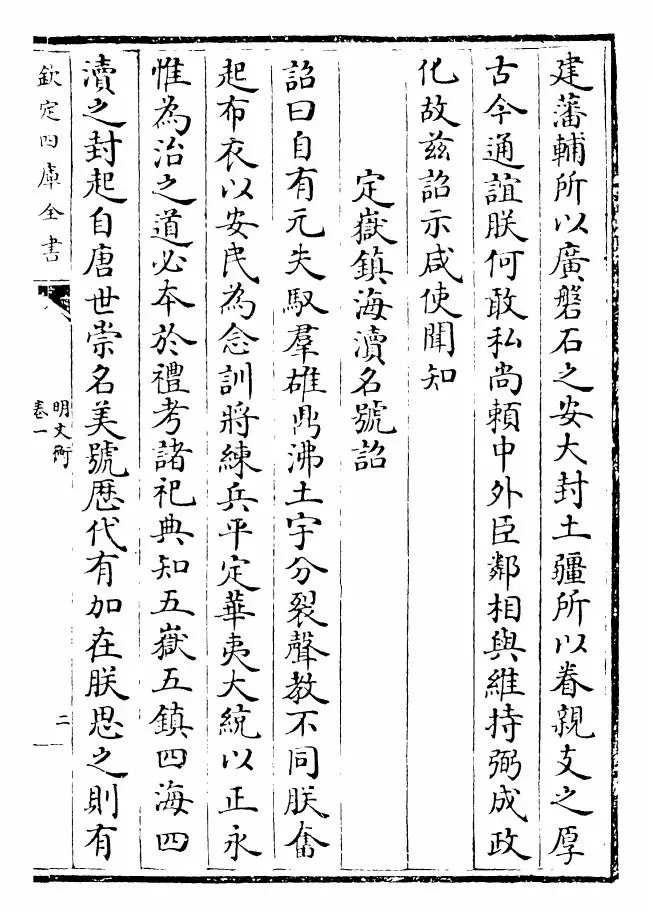 建藩輔所以廣磐石之安大封土疆所以眷親支之厚
古今通誼朕何敢私尚賴中外臣鄰相與維持弼成政
化故兹詔示咸使聞知
定嶽鎮海瀆名號詔
詔曰自有元失馭羣雄鼎沸土宇分裂聲教不同朕奮
起布衣以安民為念訓將練兵平定華夷大統以正永
惟為治之道必本於禮考諸祀典知五嶽五鎮四海四
瀆之封起自唐世崇名美號歴代有加在朕思之則有
欽定四庫全書
明文衡
卷一
二